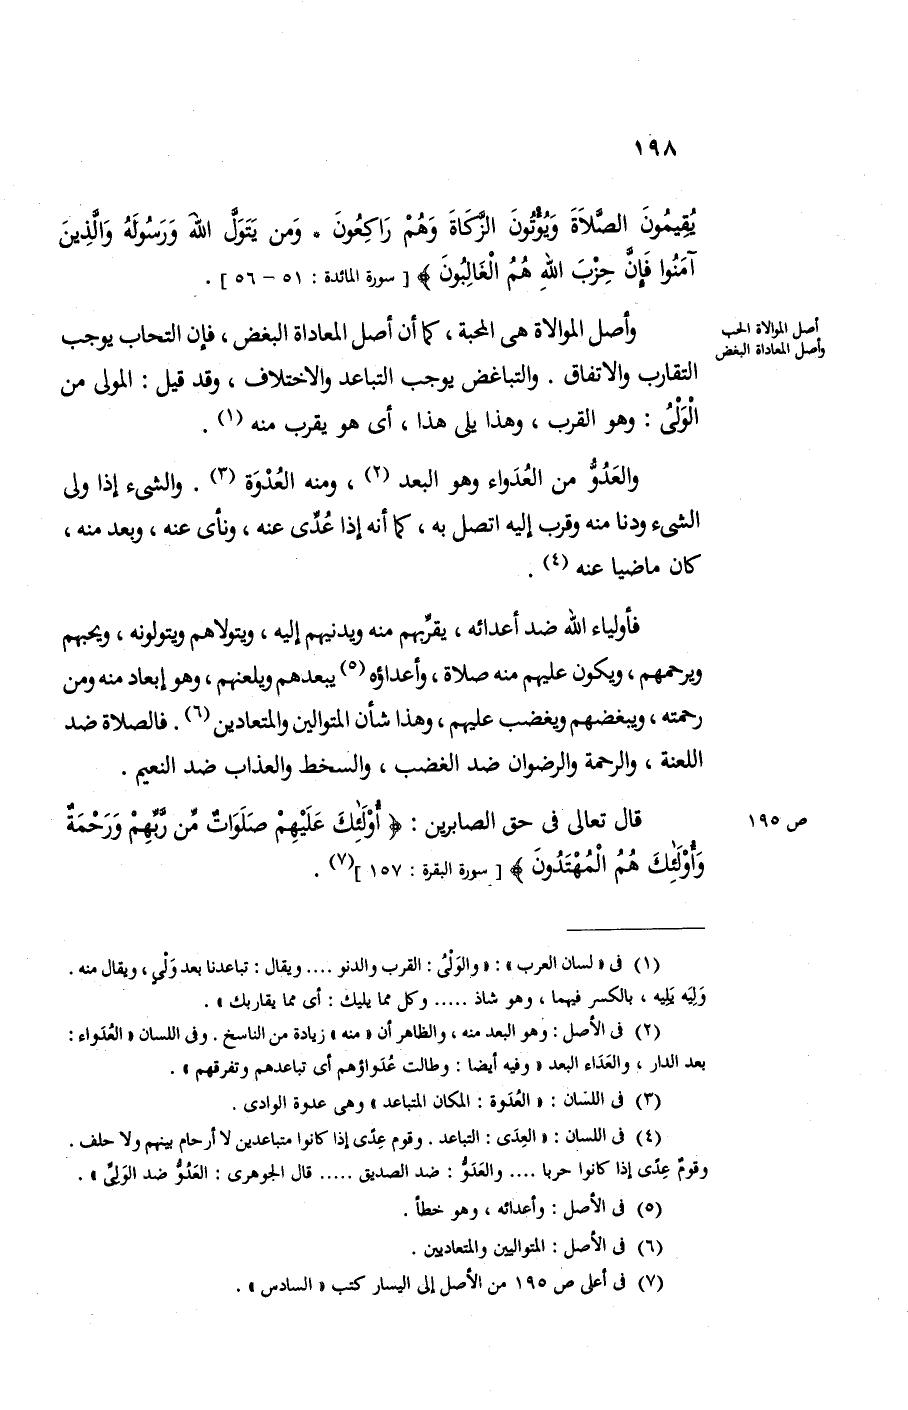 ١٩٨
يُقِيمُونَ الصَّلَاةَ وَيُؤْتُونَ الزَّكَاةَ وَهُمْ رَاكِعُونَ * وَمَن يَتَوَلَّ اللهَ وَرَسُولَهُ وَالَّذِينَ
آمَنُوا فَإِنَّ حِزْبَ اللهِ هُمُ الْغَالِبُونَ ﴾ [ سورة المائدة : ٥١ – ٥٦ ] .
أصل الموالاة الحب
وأصل المعاداة البغض
وأصل الموالاة هى المحبة ، كما أن أصل المعاداة البغض ، فإن التحاب يوجب
التقارب والاتفاق . والتباغض يوجب التباعد والاختلاف ، وقد قيل : المولى من
الْوَلْىُ : وهو القرب ، وهذا يلى هذا ، أى هو يقرب منه (١) .
والعَدُوُّ من العُدَواء وهو البعد (٢) ، ومنه العُدْوَة (٣) . والشىء إذا ولى
الشىء ودنا منه وقرب إليه اتصل به ، كما أنه إذا عُدِّى عنه ، ونأى عنه ، وبعد منه ،
كان ماضيا عنه (٤) .
فأولياء الله ضد أعدائه ، يقرِّبهم منه ويدنيهم إليه ، ويتولاهم ويتولونه ، ويحبهم
ويرحمهم ، ويكون عليهم منه صلاة ، وأعداؤه (٥) يبعدهم ويلعنهم ، وهو إبعاد منه ومن
رحمته ، ويبغضهم ويغضب عليهم ، وهذا شأن المتوالين والمتعادين (٦) . فالصلاة ضد
اللعنة ، والرحمة والرضوان ضد الغضب ، والسخط والعذاب ضد النعيم .
ص ١٩٥
قال تعالى فى حق الصابرين : ﴿ أُوْلَٰئِكَ عَلَيْهِمْ صَلَوَاتٌ مِّن رَّبِّهِمْ وَرَحْمَةٌ
وَأُوْلَٰئِكَ هُمُ الْمُهْتَدُونَ ﴾ [ سورة البقرة : ١٥٧ ] (٧) .
(١) فى « لسان العرب » : « والوَلْىُ : القرب والدنو .... ويقال : تباعدنا بعد وَلْىٍ ، ويقال منه .
وَلِيَه يَلِيه ، بالكسر فيهما ، وهو شاذ ..... وكل مما يليك : أى مما يقاربك » .
(٢) فى الأصل : وهو البعد منه ، والظاهر أن « منه » زيادة من الناسخ . وفى اللسان « العُدَواء :
بعد الدار ، والعَدَاء البعد » وفيه أيضا : وطالت عُدَواؤهم أى تباعدهم وتفرقهم » .
(٣) فى اللسان : « العُدوة : المكان المتباعد » وهى عدوة الوادى .
(٤) فى اللسان : « العِدَى : التباعد . وقوم عِدًى إذا كانوا متباعدين لا أرحام بينهم ولا حلف .
وقومٌ عِدًى إذا كانوا حربا .... والعَدُوُّ : ضد الصديق ..... قال الجوهرى : العَدُوُّ ضد الوَلِىِّ » .
(٥) فى الأصل : وأعدائه ، وهو خطأ .
(٦) فى الأصل : المتواليين والمتعاديين .
(٧) فى أعلى ص ١٩٥ من الأصل إلى اليسار كتب « السادس » .